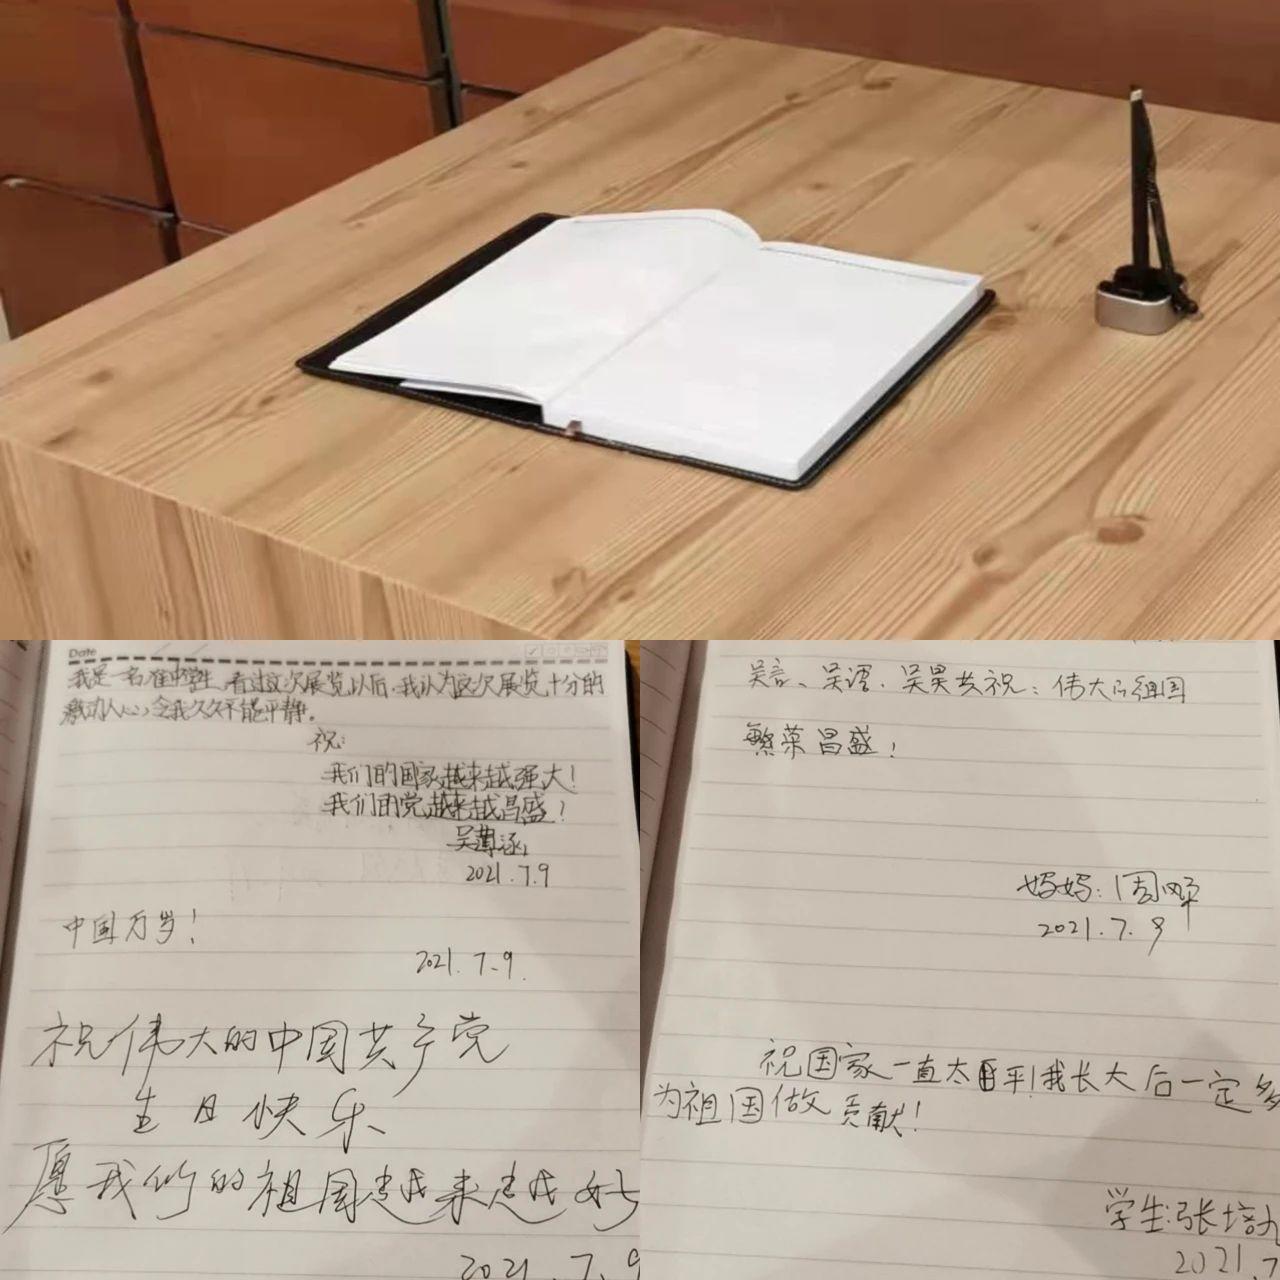 Date
我是一名准中学生,看过这次展览以后,我认为这次展览十分的
激动人心,令我久久不能平静。
祝:
我们的国家越来越强大!
我们的党越来越昌盛!
2021.7.9
中国万岁!
2021.7.9.
祝伟大的中国共产党
生日快乐
愿我们的祖国越来越好
2021.7.9
吴言、吴语、吴昊共祝:伟大的祖国
繁荣昌盛!
妈妈:周
2021.7.9
祝国家一直太平!我长大后一定多
为祖国做贡献!
学生:张培
2021.7